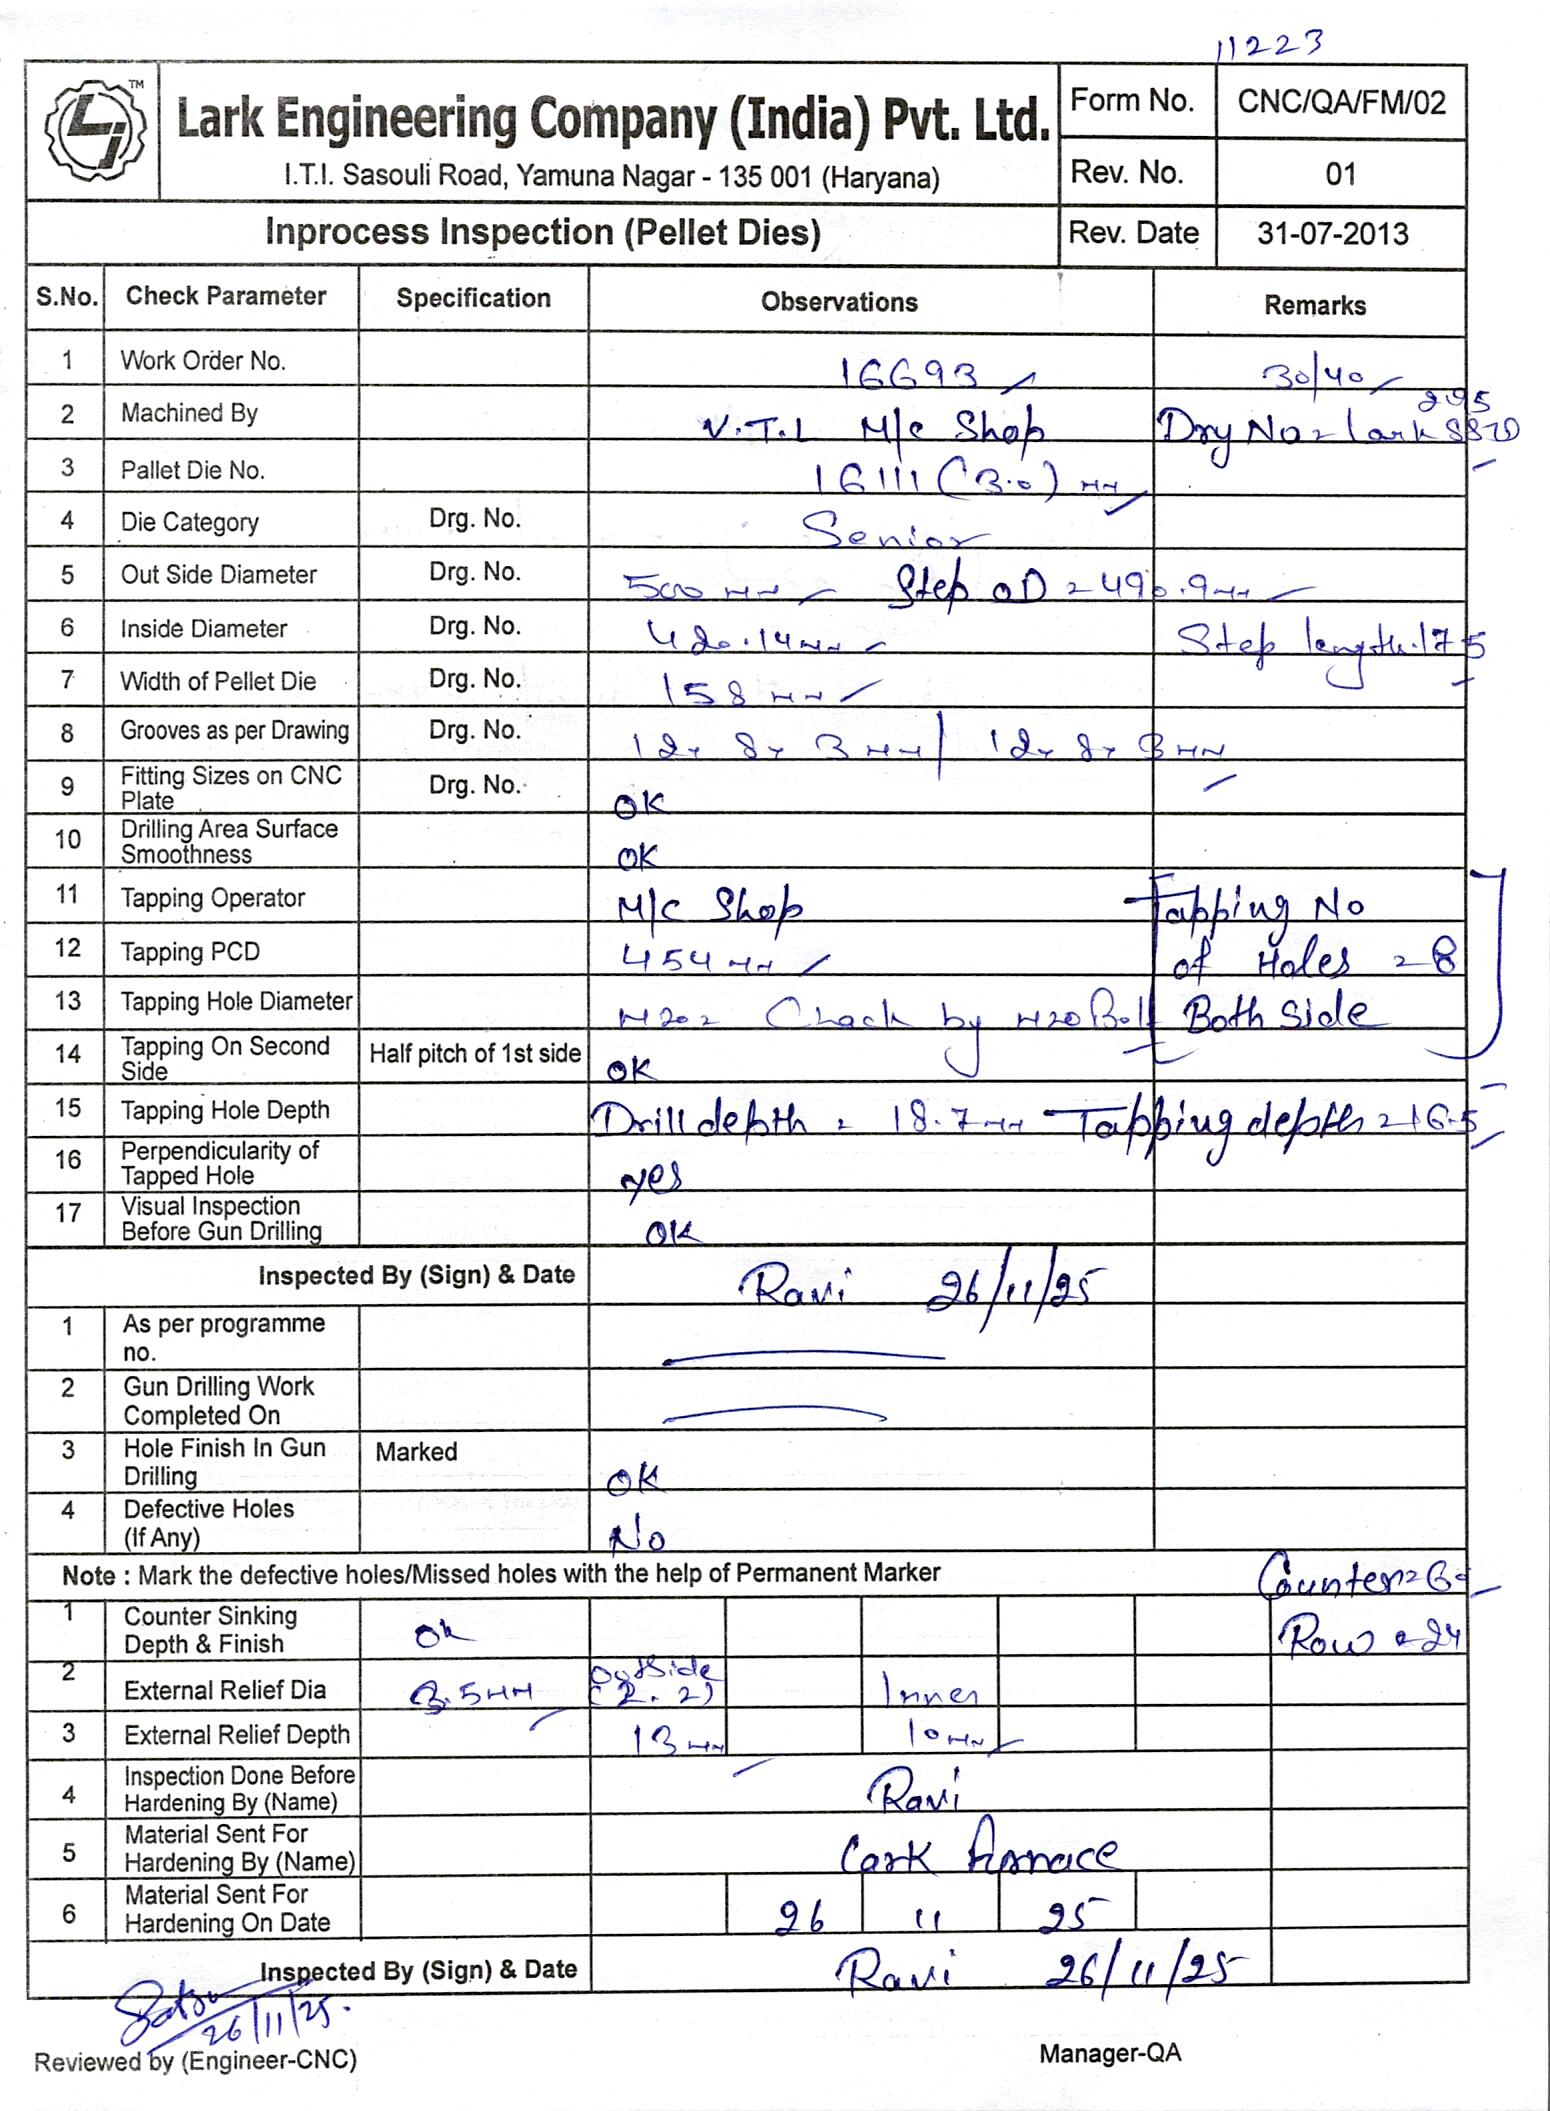 11223
Lark Engineering Company (India) Pvt. Ltd.
I.T.I. Sasouli Road, Yamuna Nagar - 135 001 (Haryana)
Form No. CNC/QA/FM/02
Rev. No. 01
Inprocess Inspection (Pellet Dies)
Rev. Date 31-07-2013
S.No. Check Parameter Specification Observations Remarks
1 Work Order No. 16693 30/40
2 Machined By V.T.L M/c Shop Dry No = Lark
3 Pallet Die No. 16111 (3.0) MM
4 Die Category Drg. No. Senior
5 Out Side Diameter Drg. No. 500 MM Step OD = 490.9 MM
6 Inside Diameter Drg. No. 420.14 MM Step length.175
7 Width of Pellet Die Drg. No. 158 MM
8 Grooves as per Drawing Drg. No. 12x 8x 3 MM / 12x 8x 3 MM
9 Fitting Sizes on CNC Plate Drg. No. OK
10 Drilling Area Surface Smoothness OK
11 Tapping Operator M/c Shop Tapping No
12 Tapping PCD 454 MM of Holes = 8
13 Tapping Hole Diameter M20 = Chack by M20 Bolt Both Side
14 Tapping On Second Side Half pitch of 1st side OK
15 Tapping Hole Depth Drill depth = 18.7 MM Tapping depth = 16.5
16 Perpendicularity of Tapped Hole yes
17 Visual Inspection Before Gun Drilling OK
Inspected By (Sign) & Date Ravi 26/11/25
1 As per programme no.
2 Gun Drilling Work Completed On
3 Hole Finish In Gun Drilling Marked OK
4 Defective Holes (If Any) No
Note : Mark the defective holes/Missed holes with the help of Permanent Marker
Counter = 60
1 Counter Sinking Depth & Finish Ok Row = 24
2 External Relief Dia 3.5 MM Outside (2.2) Inner
3 External Relief Depth 13 MM 10 MM
4 Inspection Done Before Hardening By (Name) Ravi
5 Material Sent For Hardening By (Name) Lark furnace
6 Material Sent For Hardening On Date 26 11 25
Inspected By (Sign) & Date Ravi 26/11/25
26/11/25.
Reviewed by (Engineer-CNC) Manager-QA